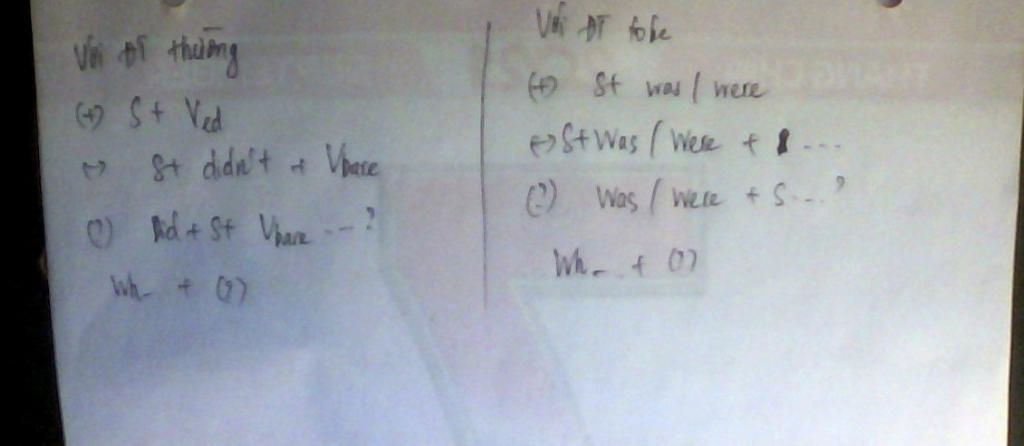 Với ĐT thường
(+) S + Ved
(-) S + didn't + Vbare
(?) Did + S + Vbare ...?
Wh_ + (?)
Với ĐT tobe
(+) S + was / were
(-) S + Was / Were + ...
(?) Was / Were + S ...?
Wh_ .. + (?)